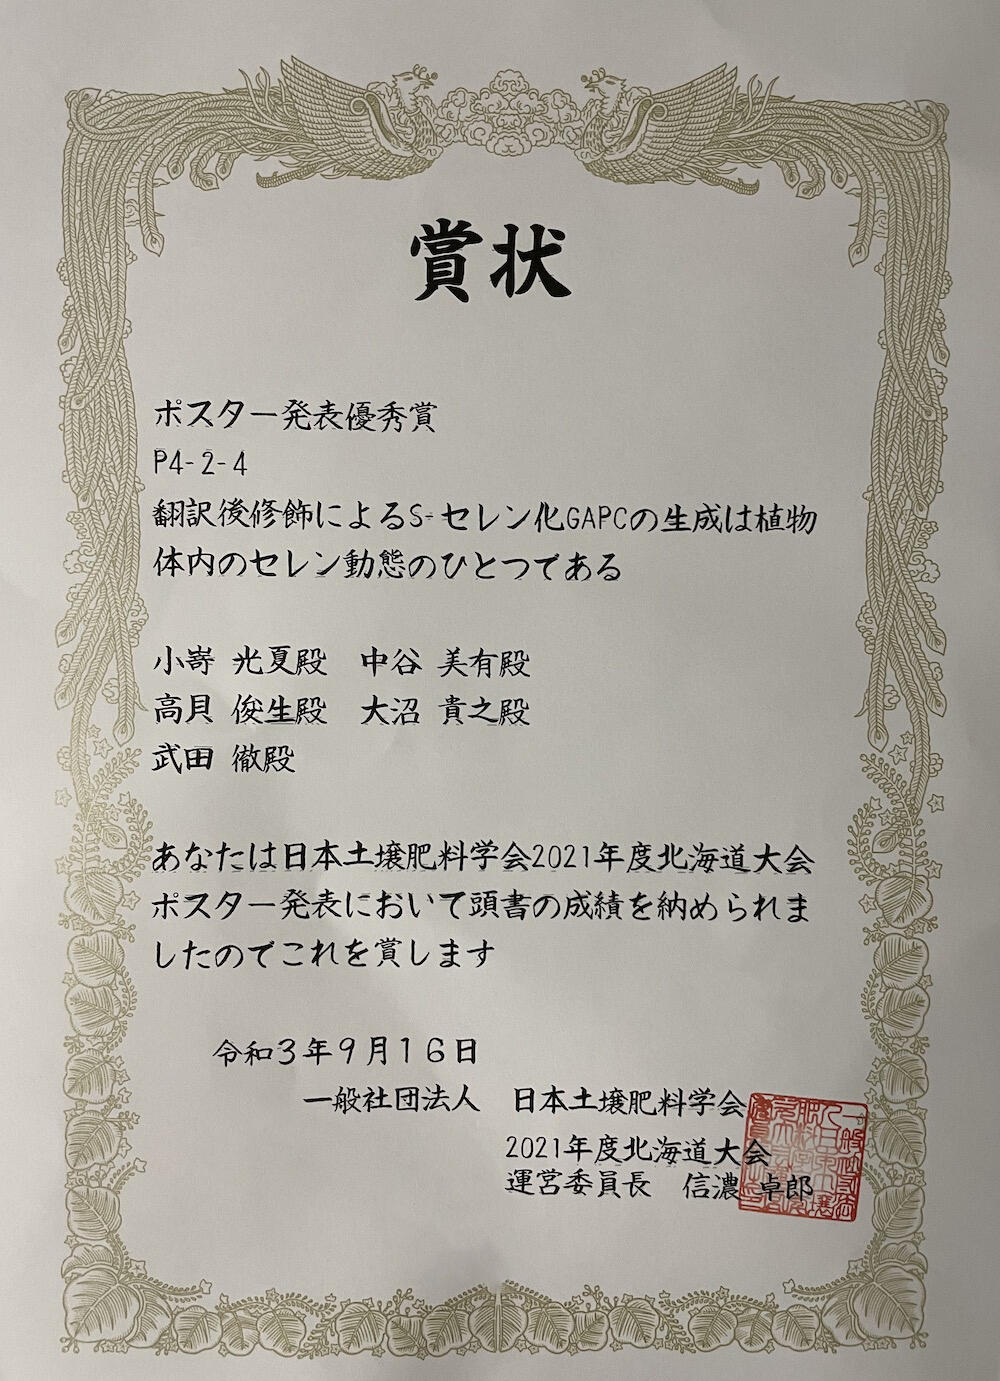 賞状
ポスター発表優秀賞
P4-2-4
翻訳後修飾によるS-セレン化GAPCの生成は植物
体内のセレン動態のひとつである
小嵜 光夏殿　中谷 美有殿
高貝 俊生殿　大沼 貴之殿
武田 徹殿
あなたは日本土壌肥料学会2021年度北海道大会
ポスター発表において頭書の成績を納められま
したのでこれを賞します
令和３年９月１６日
一般社団法人　日本土壌肥料学会
2021年度北海道大会
運営委員長　信濃 卓郎